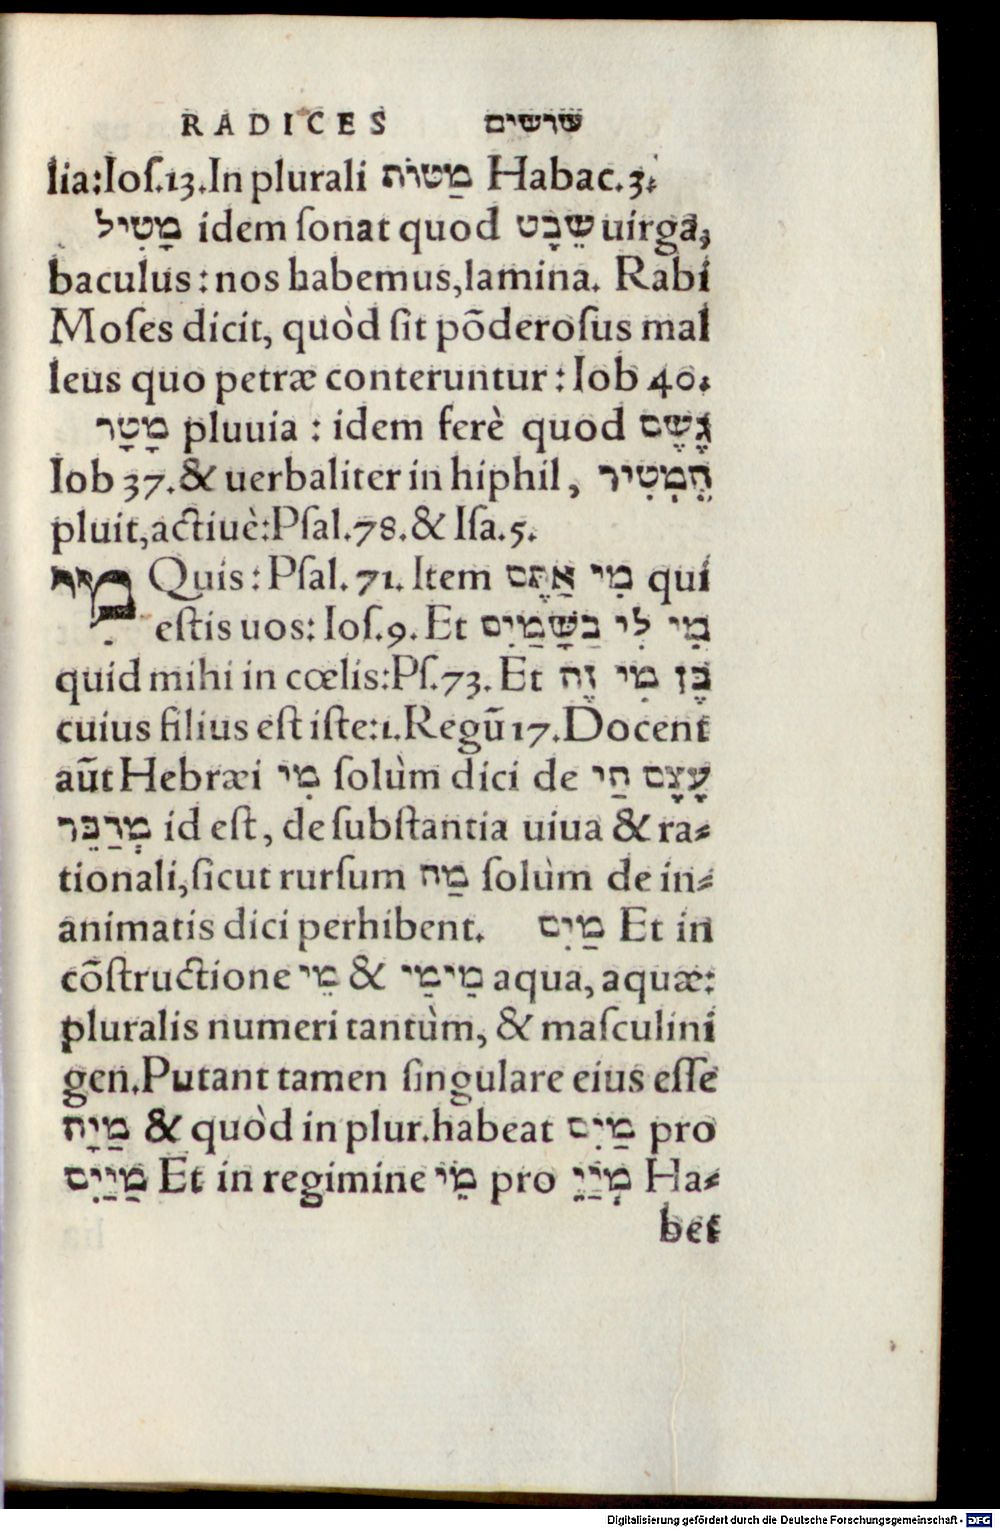 RADICES שרשים
lia:Ioſ.13.In plurali מַטּוֹת Habac.3.
מָטִיל idem ſonat quod שֵׁבֶט uirga,
baculus: nos habemus,lamina. Rabi
Moſes dicit, quòd ſit põderoſus mal
leus quo petræ conteruntur: Iob 40.
מָטָר pluuia : idem ferè quod גֶּשֶׁם
Iob 37.& uerbaliter in hiphil, הֱמְטִיר
pluit,actiuè:Pſal.78.& Iſa.5.
מִי Quis: Pſal. 71. Item מִי אַתֶּם qui
eſtis uos: Ioſ.9. Et מִי לִי בַשָּׁמַיִם
quid mihi in cœlis:Pſ.73. Et בֶּן מִי זֶה
cuius filius eſt iſte:1.Regũ 17.Docent
aũt Hebræi מִי ſolùm dici de עָצָם חַי
מְדַבֵּר id eſt, de ſubſtantia uiua & ra⸗
tionali,ſicut rurſum מַה ſolùm de in⸗
animatis dici perhibent. מַיִם Et in
cõſtructione מֵי & מַימֵי aqua, aquæ:
pluralis numeri tantùm, & maſculini
gen.Putant tamen ſingulare eius eſſe
מַיָה & quòd in plur.habeat מַיִם pro
מַיַיִם Et in regimine מֵי pro מְיַיֵ Ha⸗
bet
Digitalisierung gefördert durch die Deutsche Forschungsgemeinschaft - DFG